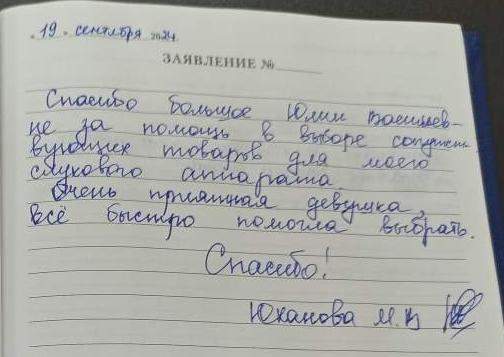 „19" сентября 2024
ЗАЯВЛЕНИЕ №
Спасибо большое Юлии Васильев-
не за помощь в выборе сопутст
вующих товаров для моего
слухового аппарата
Очень приятная девушка,
всё быстро помогла выбрать.
Спасибо!
Юханова М.В